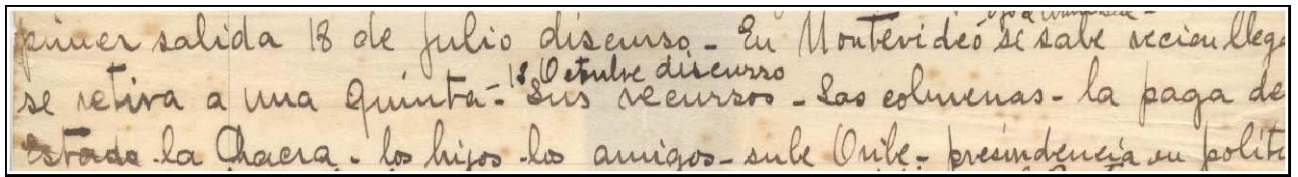 primer salida 18 de Julio discurso - En Montevideo se sabe recien llega
18 Octubre discurso
se retira a una Quinta - Sus recursos - Las colmenas - la paga de
Estado - la Chacra - los hijos - los amigos - sube Oribe - presindencia en polít